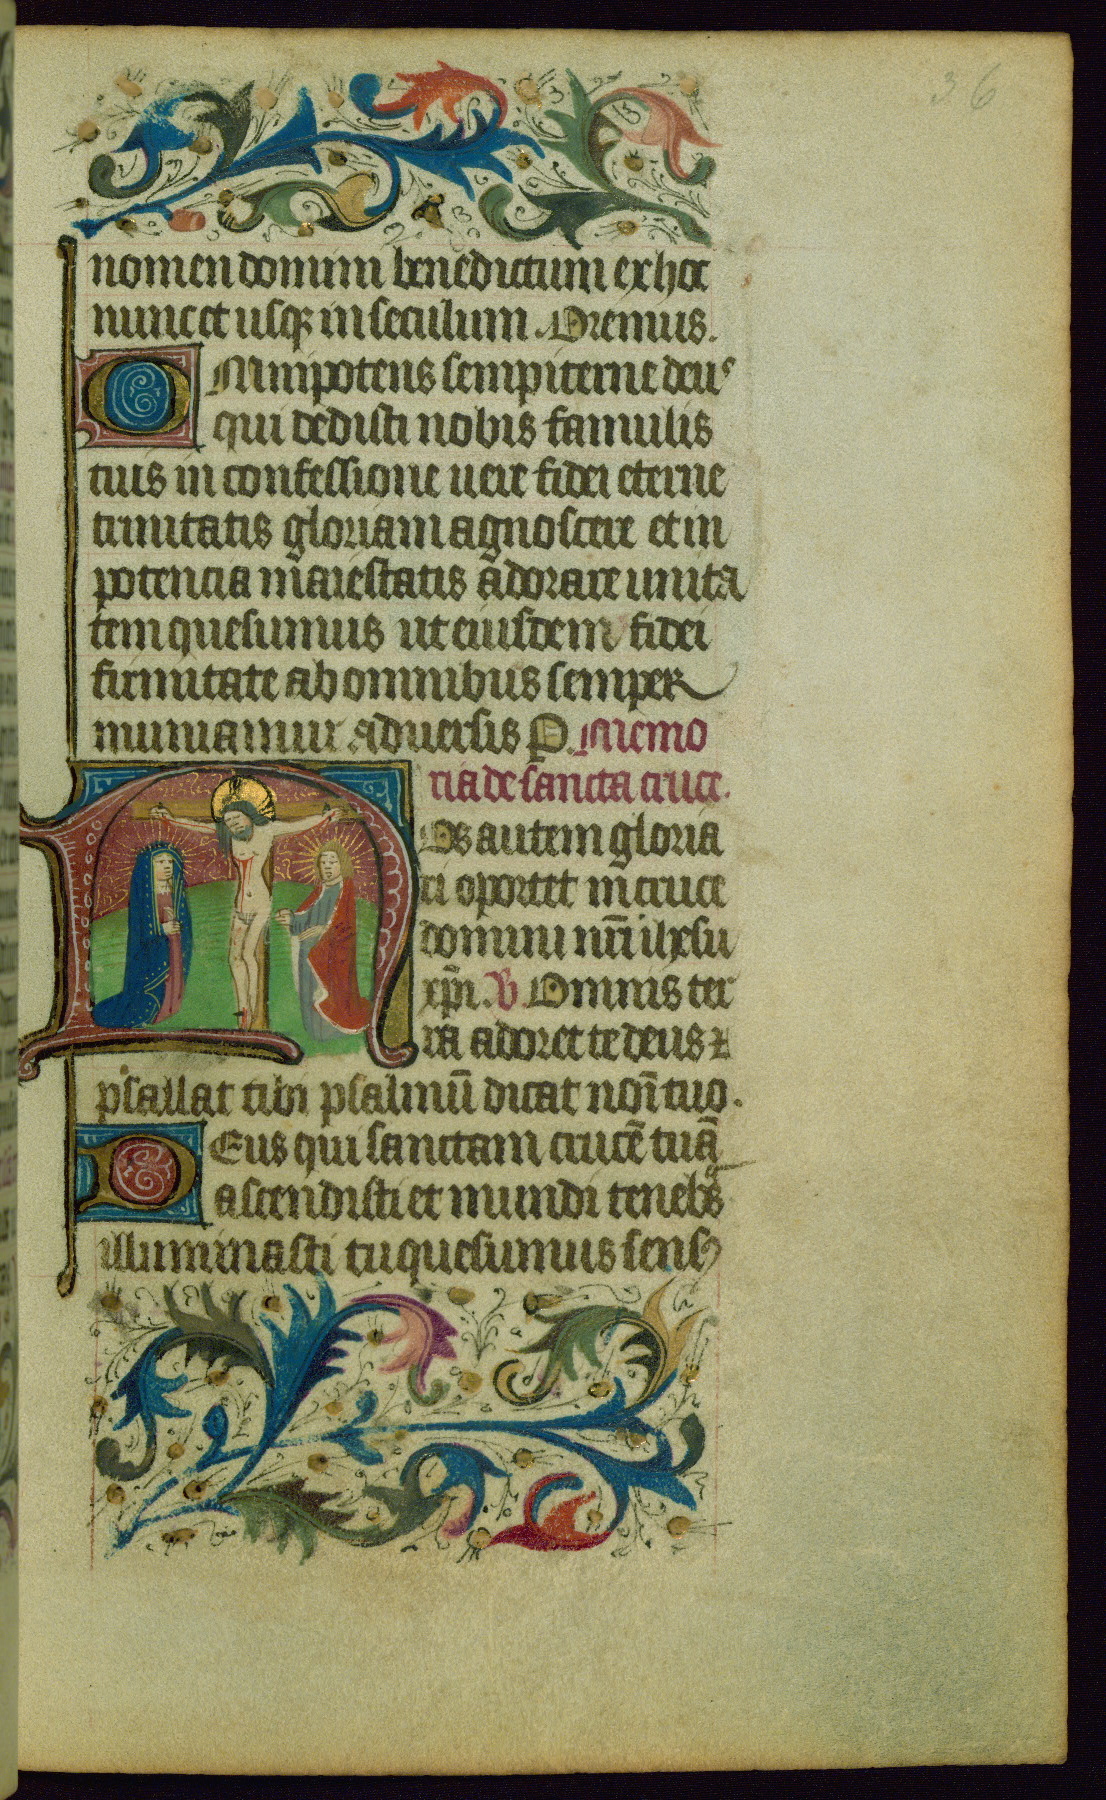 36
nomen domini benedictum ex hoc
nunc et usqꝫ in seculum. Oremus.
OMnipotens sempiterne deuꝰ
qui dedisti nobis famulis
tuis in confessione uere fidei eterne
trinitatis gloriam agnoscere et in
potencia maiestatis adorare unita
tem quesumus ut eiusdem fidei
firmitate ab omnibus semper
muniamur aduersis P. Memo
ria de sancta cruce.
NOs autem gloria
ri oportet in cruce
domini nr̄i ihesu
xp̄i. V Omnis ter
ra adoret te deus ⁊
psallat tibi psalmū dicat noī tuo.
DEus qui sanctam crucē tuā
ascendisti et mundi tenebᵃs
illuminasti tu quesumus sensꝰ